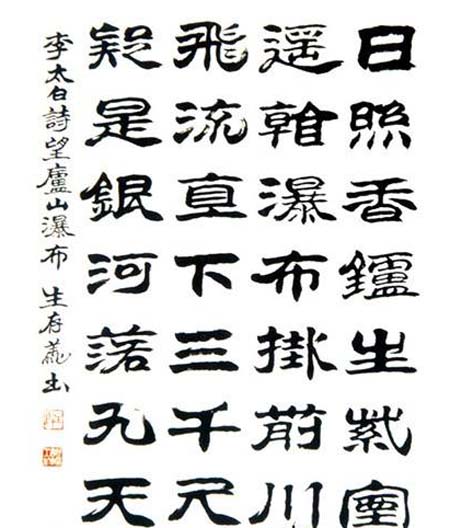 日照香鑪生紫煙
遙看瀑布掛前川
飛流直下三千尺
疑是銀河落九天
李太白詩望廬山瀑布 生存義书